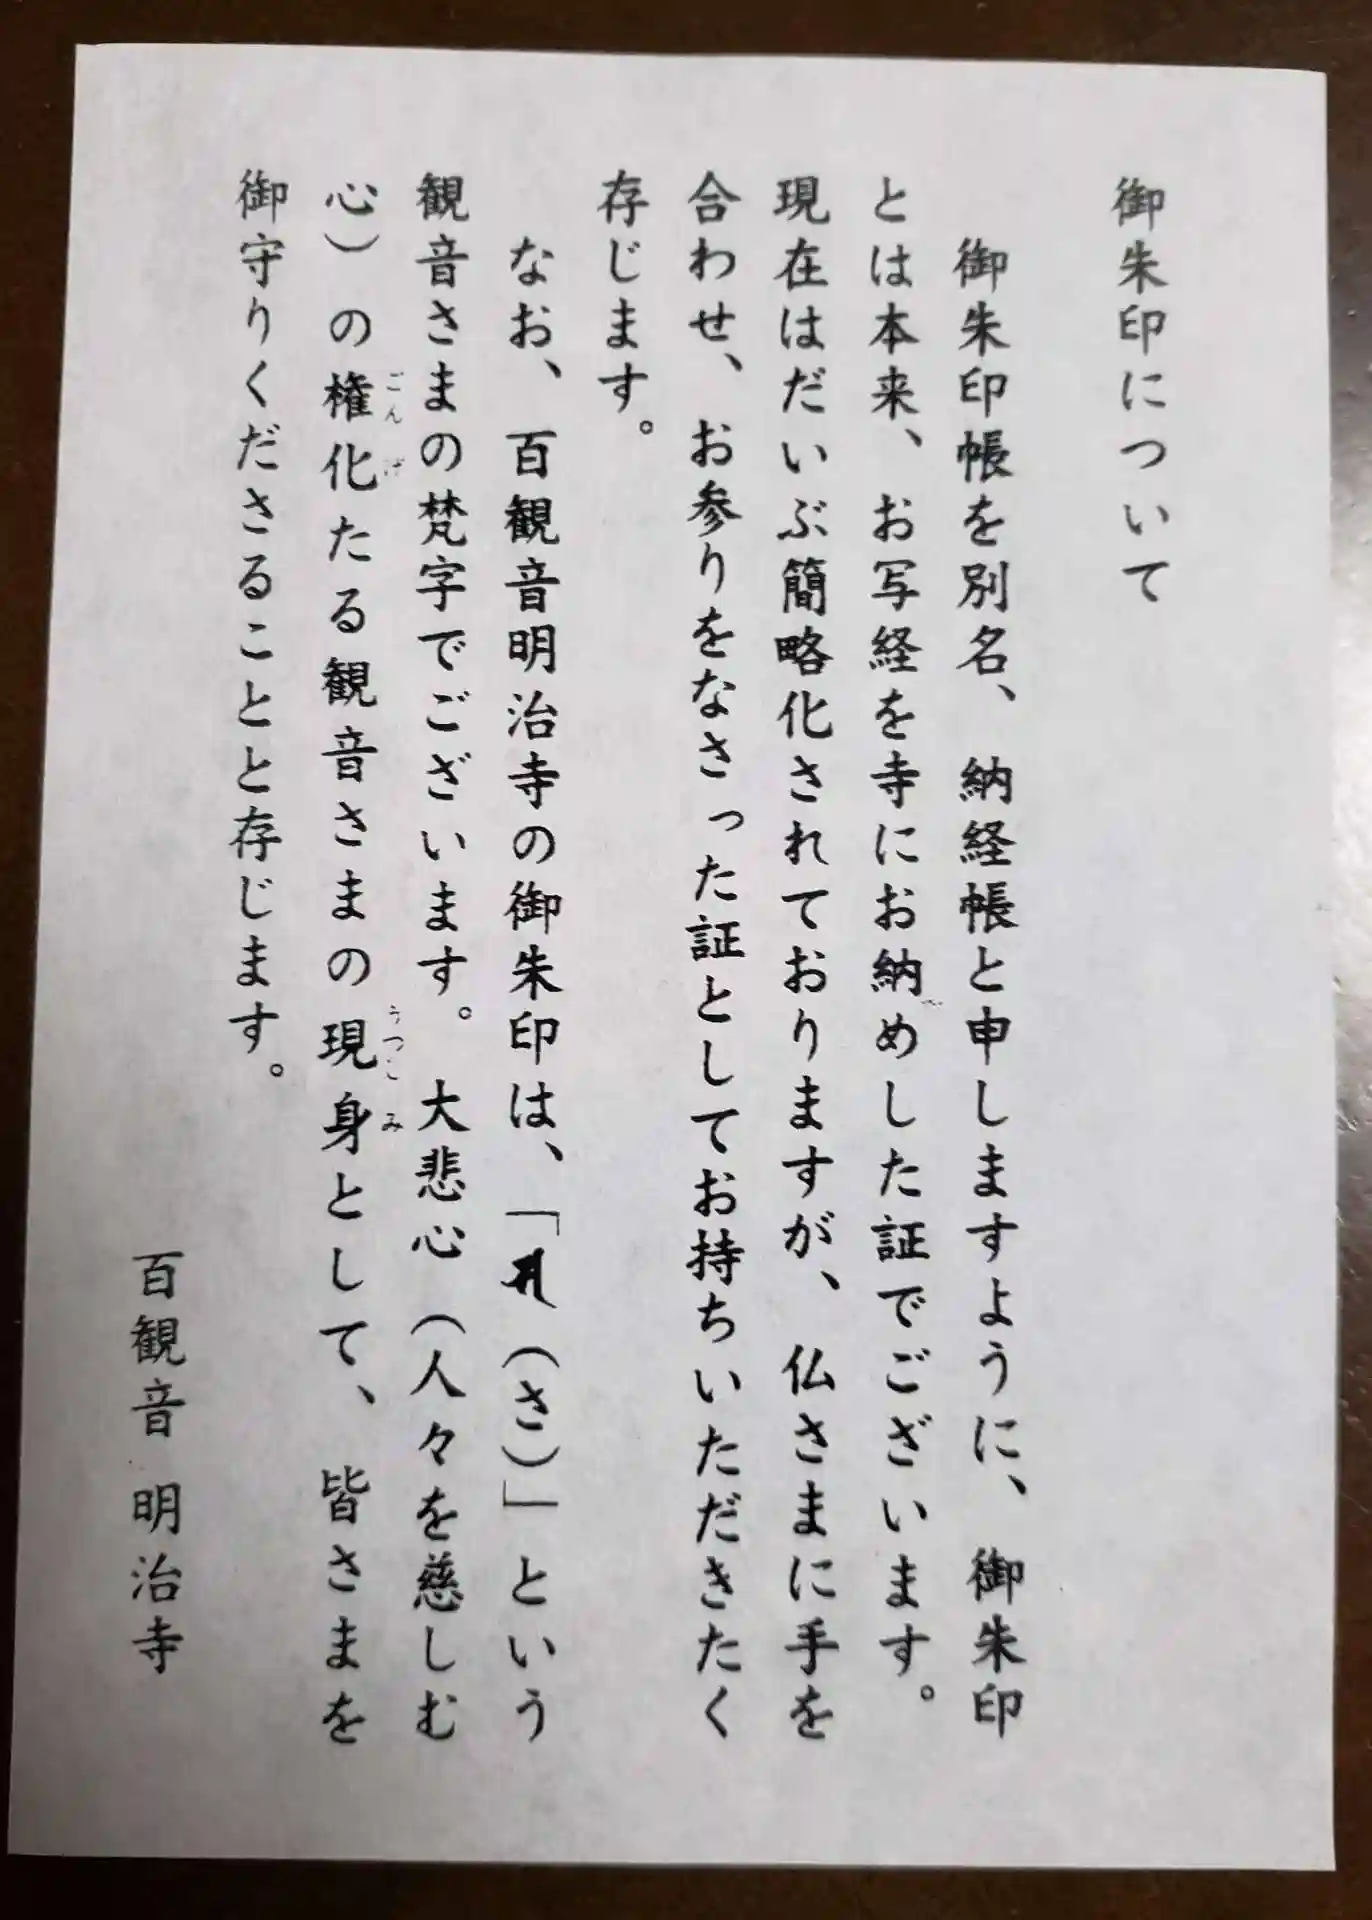 御朱印について
御朱印帳を別名、納経帳と申しますように、御朱印
とは本来、お写経を寺にお納めした証でございます。
現在はだいぶ簡略化されておりますが、仏さまに手を
合わせ、お参りをなさった証としてお持ちいただきたく
存じます。
なお、百観音明治寺の御朱印は、「𑖭（さ）」という
観音さまの梵字でございます。大悲心（人々を慈しむ
心）の権化たる観音さまの現身として、皆さまを
ごんげ
うつこみ
御守りくださることと存じます。
百観音 明治寺